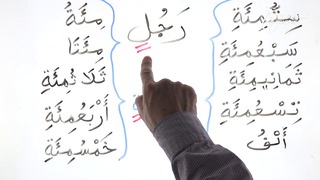 مِئَةُ
مِئَتَا
ثَلَاثُمِئَةِ
أَرْبَعُمِئَةِ
خَمْسُمِئَةِ
رَجُلٍ
سَبْعُمِئَةِ
ثَمَانِيمِئَةِ
تِسْعُمِئَةِ
أَلْفُ